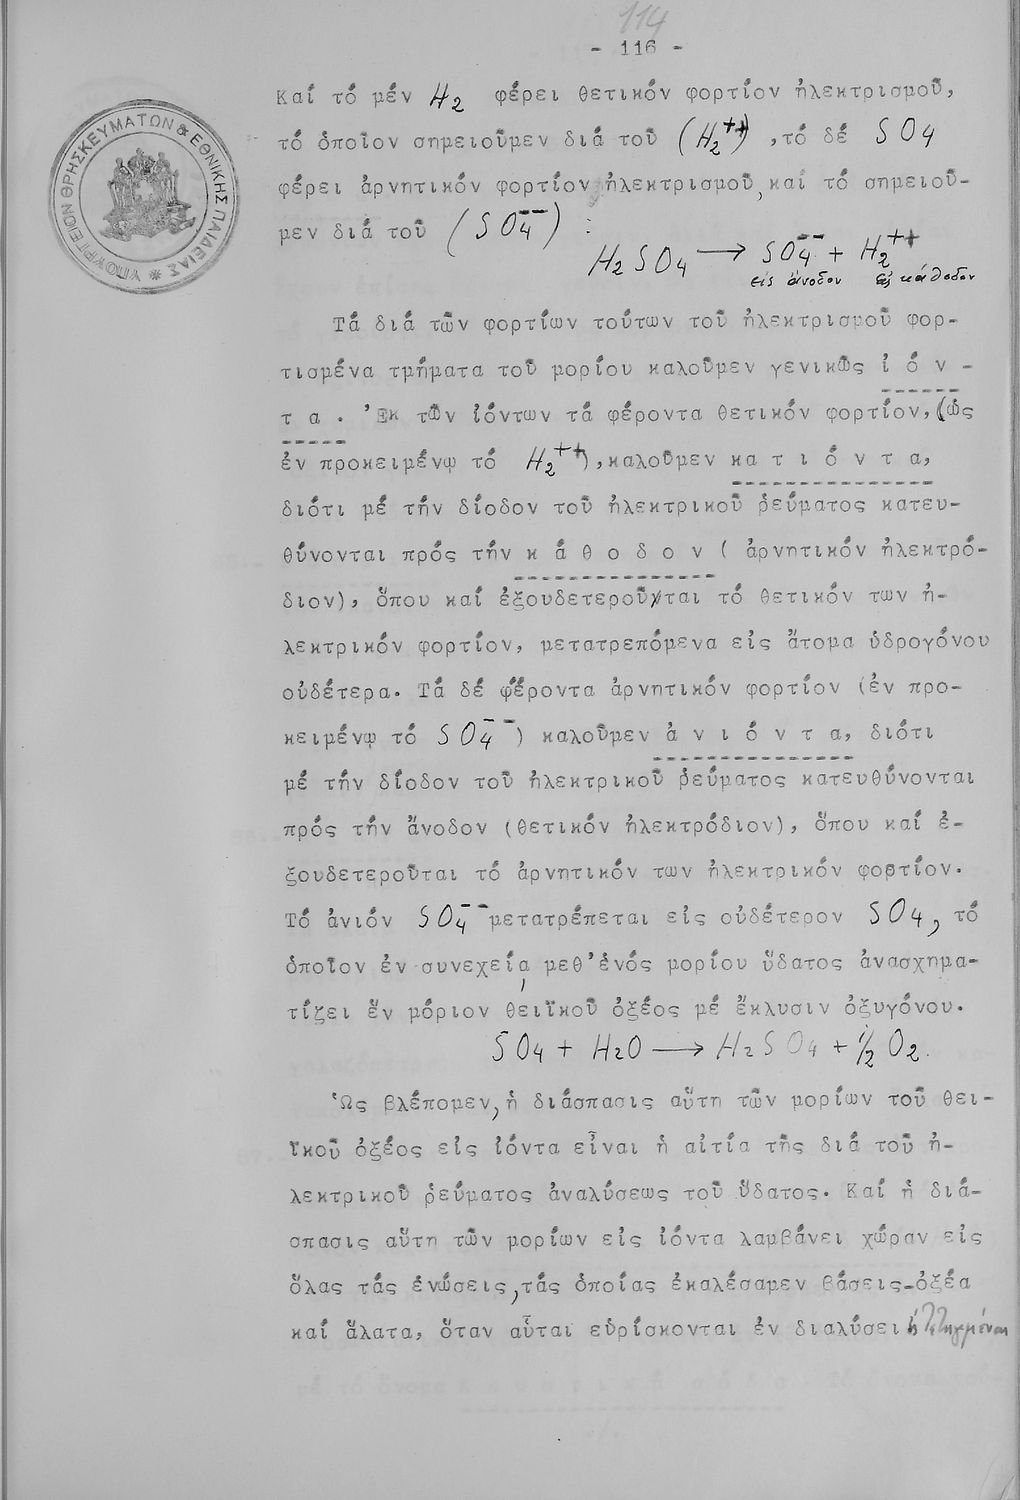 114
- 116 -
ΥΠΟΥΡΓΕΙΟΝ ΘΡΗΣΚΕΥΜΑΤΩΝ & ΕΘΝΙΚΗΣ ΠΑΙΔΕΙΑΣ *
Καί τό μέν H₂ φέρει θετικόν φορτίον ἠλεκτρισμοῦ,
τό ὁποῖον σημειοῦμεν διά τοῦ (H₂⁺⁺) ,τό δέ SO₄
φέρει ἀρνητικόν φορτίον ἠλεκτρισμοῦ, καί τό σημειοῦ-
μεν διά τοῦ (SO₄⁻⁻) :
H₂SO₄ → SO₄⁻⁻ + H₂⁺⁺
εἰς ἄνοδον εἰς κάθοδον
Τά διά τῶν φορτίων τούτων τοῦ ἠλεκτρισμοῦ φορ-
τισμένα τμήματα τοῦ μορίου καλοῦμεν γενικῶς ἰ ό ν -
τ α . Ἐκ τῶν ἰόντων τά φέροντα θετικόν φορτίον,(ὡς
ἐν προκειμένῳ τό H₂⁺⁺),καλοῦμεν κ α τ ι ό ν τ α,
διότι μέ τήν δίοδον τοῦ ἠλεκτρικοῦ ῥεύματος κατευ-
θύνονται πρός τήν κ ά θ ο δ ο ν ( ἀρνητικόν ἠλεκτρό-
διον), ὅπου καί ἐξουδετεροῦται τό θετικόν των ἠ-
λεκτρικόν φορτίον, μετατρεπόμενα εἰς ἄτομα ὑδρογόνου
οὐδέτερα. Τά δέ φέροντα ἀρνητικόν φορτίον (ἐν προ-
κειμένῳ τό SO₄⁻⁻) καλοῦμεν ἀ ν ι ό ν τ α, διότι
μέ τήν δίοδον τοῦ ἠλεκτρικοῦ ῥεύματος κατευθύνονται
πρός τήν ἄνοδον (θετικόν ἠλεκτρόδιον), ὅπου καί ἐ-
ξουδετεροῦται τό ἀρνητικόν των ἠλεκτρικόν φορτίον.
Τό ἀνιόν SO₄⁻⁻ μετατρέπεται εἰς οὐδέτερον SO₄, τό
ὁποῖον ἐν συνεχείᾳ μεθ'ἑνός μορίου ὕδατος ἀνασχημα-
τίζει ἕν μόριον θειϊκοῦ ὀξέος μέ ἔκλυσιν ὀξυγόνου.
SO₄ + H₂O → H₂SO₄ + 1/2 O₂.
Ὡς βλέπομεν, ἡ διάσπασις αὕτη τῶν μορίων τοῦ θει-
ϊκοῦ ὀξέος εἰς ἰόντα εἶναι ἡ αἰτία τῆς διά τοῦ ἠ-
λεκτρικοῦ ῥεύματος ἀναλύσεως τοῦ ὕδατος. Καί ἡ διά-
σπασις αὕτη τῶν μορίων εἰς ἰόντα λαμβάνει χώραν εἰς
ὅλας τάς ἑνώσεις, τάς ὁποίας ἐκαλέσαμεν βάσεις-ὀξέα
καί ἅλατα, ὅταν αὗται εὑρίσκονται ἐν διαλύσει ἤ τετηγμέναι